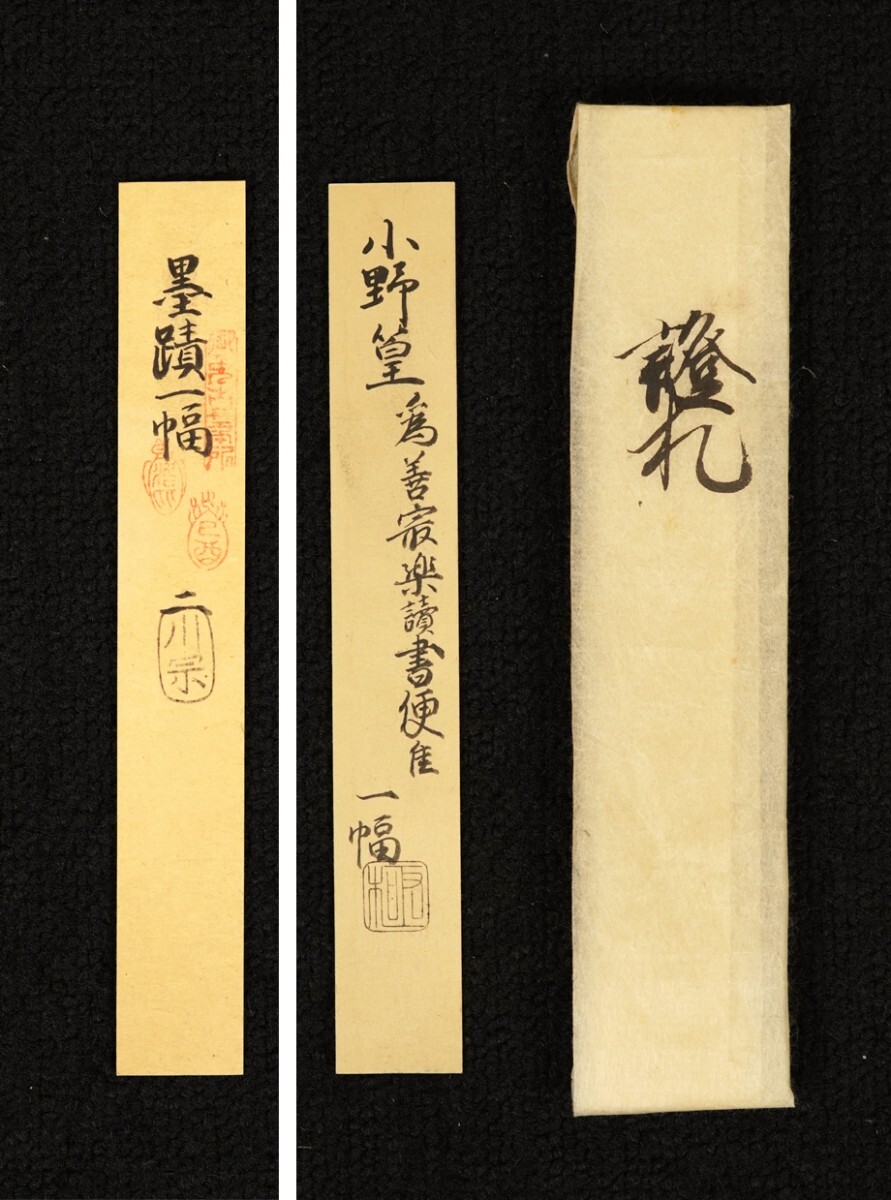 墨蹟一幅
二川宗
己酉
小野篁
為善寂楽讀書便佳
一幅
極
證札